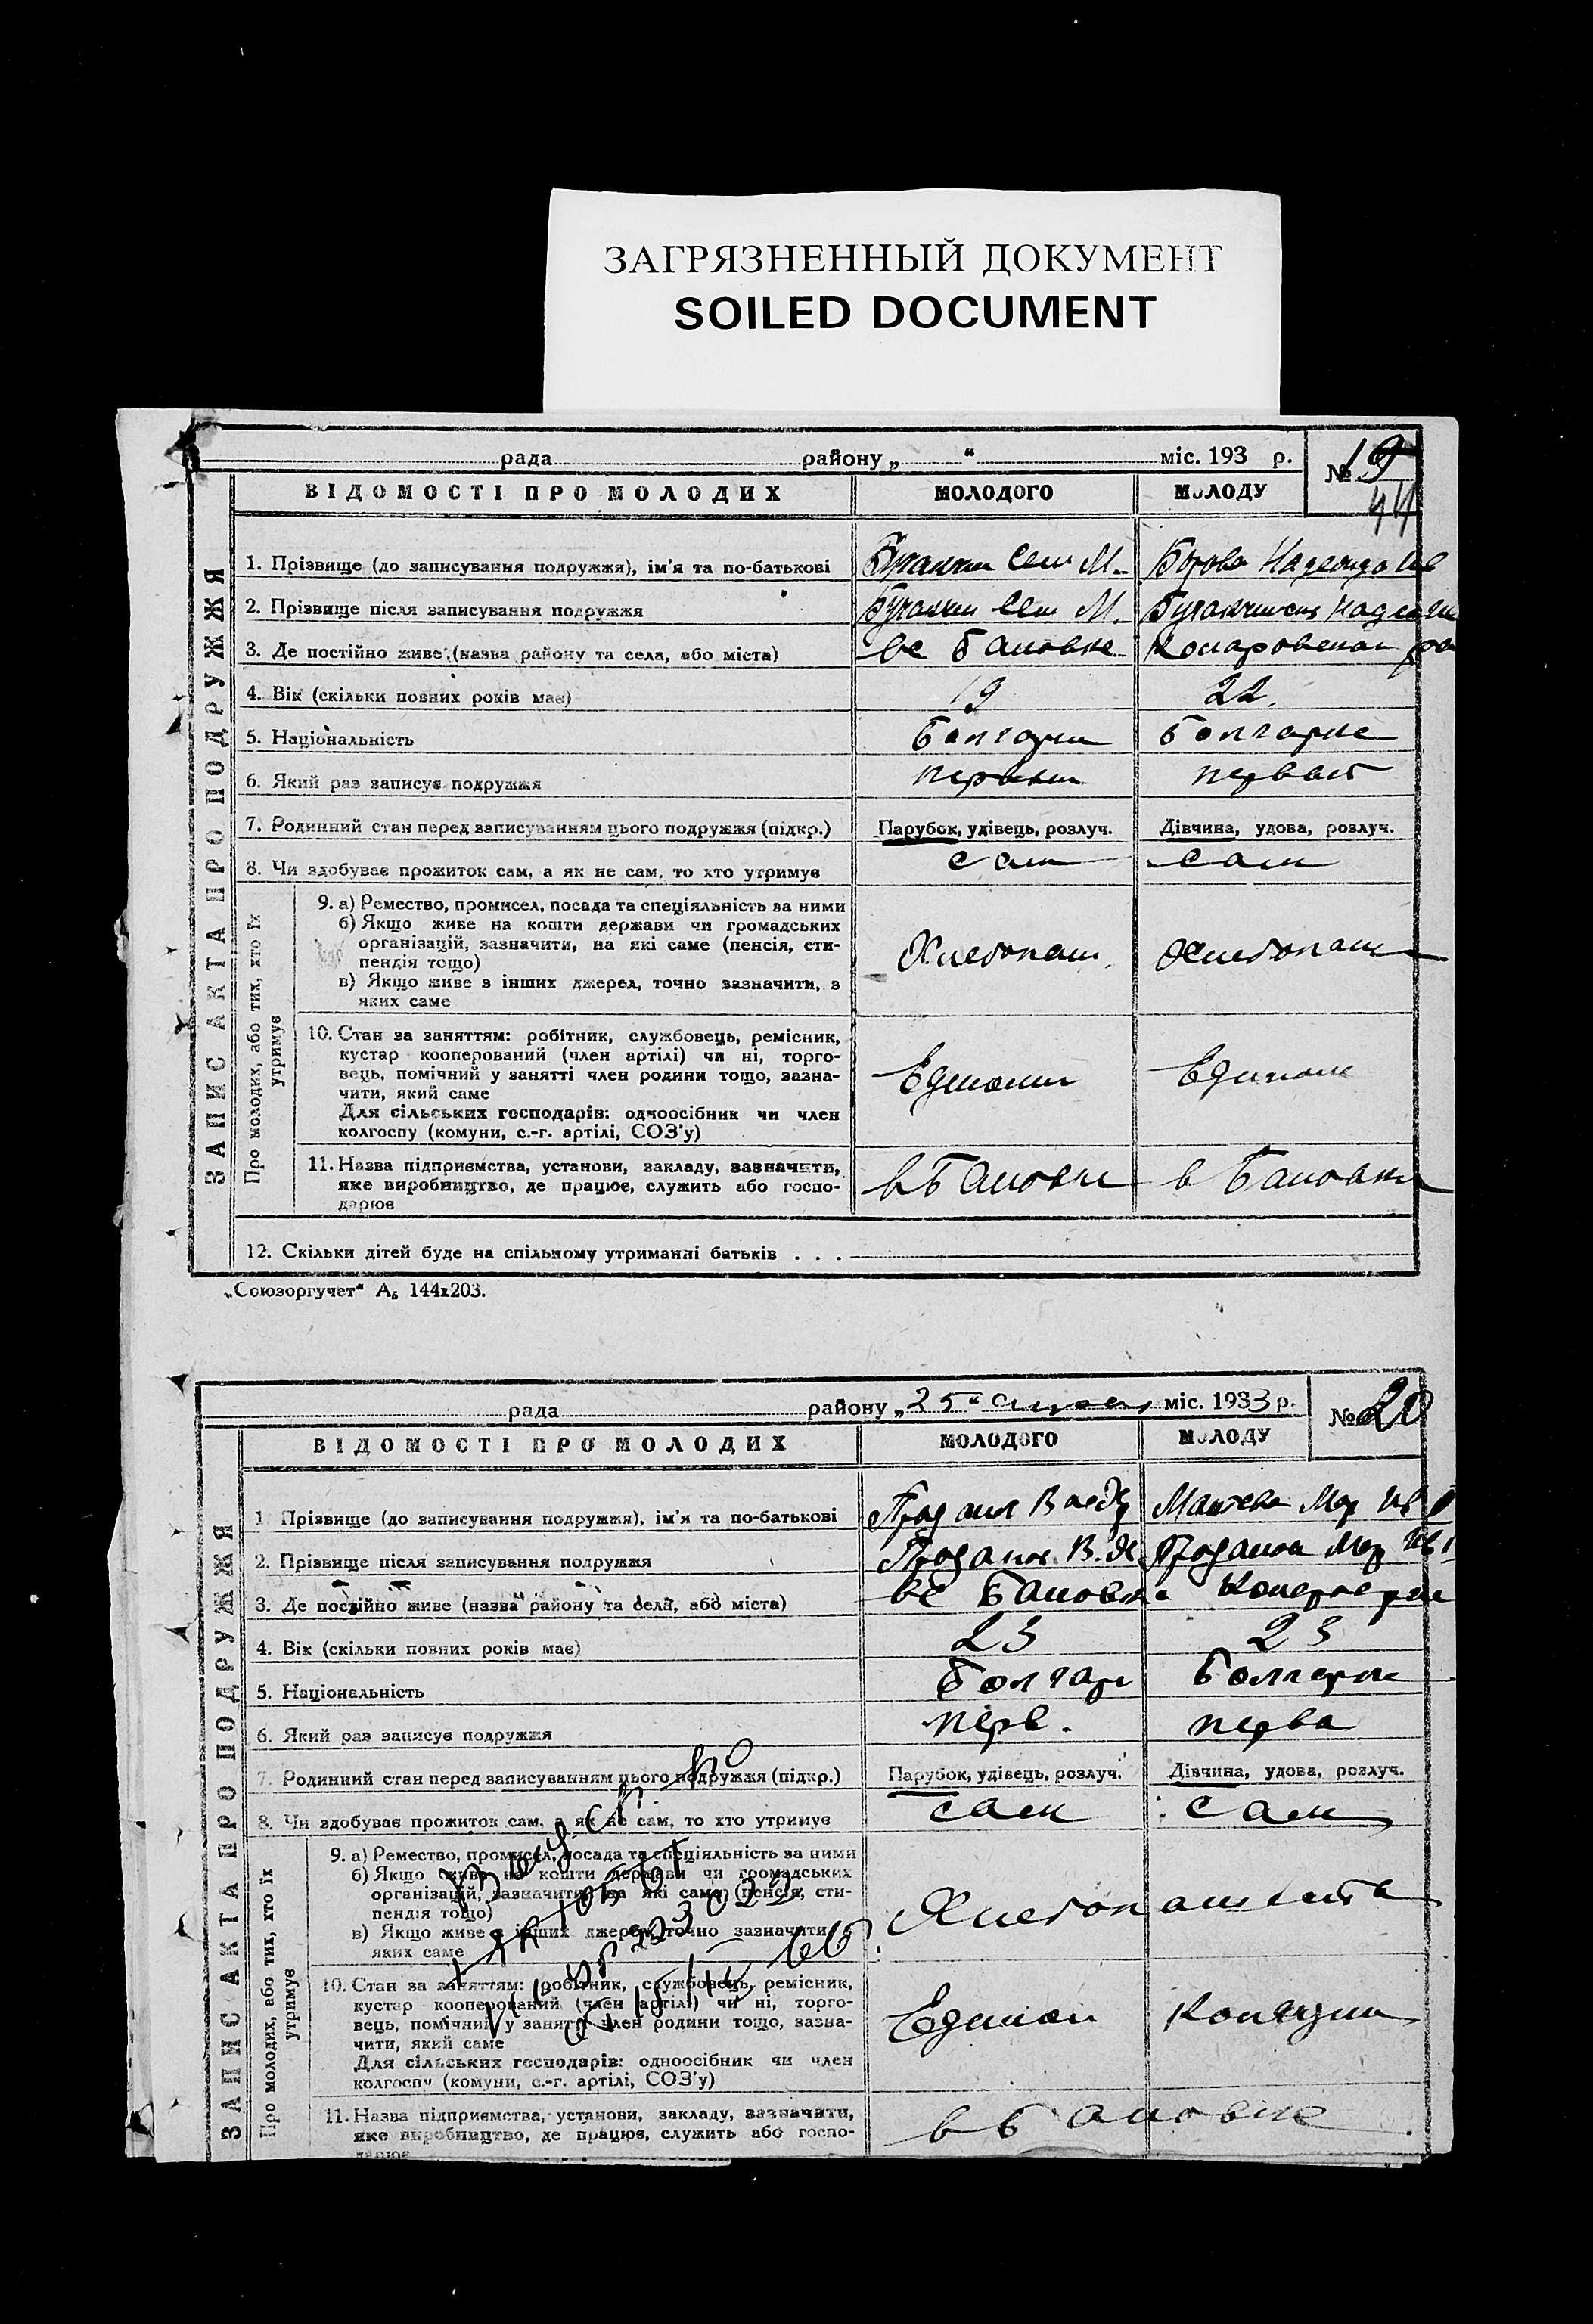 ЗАГРЯЗНЕННЫЙ ДОКУМЕНТ
SOILED DOCUMENT
рада району „ “ міс. 193 р.
№ 19
44
ВІДОМОСТІ ПРО МОЛОДИХ МОЛОДОГО МОЛОДУ
ЗАПИС АКТА ПРО ПОДРУЖЖЯ
1. Прізвище (до записування подружжя), ім'я та по-батькові М. Надежда Ив
2. Прізвище після записування подружжя М.
3. Де постійно живе (назва району та села, або міста) вс Бановке
4. Вік (скільки повних років має) 19 22.
5. Національність Болгарин Болгарке
6. Який раз записує подружжя первый
7. Родинний стан перед записуванням цього подружжя (підкр.) Парубок, удівець, розлуч. Дівчина, удова, розлуч.
8. Чи здобуває прожиток сам, а як не сам, то хто утримує сам сам
Про молодих, або тих, хто їх утримує
9. а) Ремество, промисел, посада та спеціяльність за ними
б) Якщо живе на кошти держави чи громадських
організацій, зазначити, на які саме (пенсія, сти-
пендія тощо)
в) Якщо живе з інших джерел, точно зазначити, з
яких саме
Хлебопаш. Хлебопаш
10. Стан за заняттям: робітник, службовець, ремісник,
кустар кооперований (член артілі) чи ні, торго-
вець, помічний у занятті член родини тощо, зазна-
чити, який саме
Для сільських господарів: одноосібник чи член
колгоспу (комуни, с.-г. артілі, СОЗ'у)
11. Назва підприємства, установи, закладу, зазначити,
яке виробництво, де працює, служить або госпо-
дарює
в Бановке в Бановке
12. Скільки дітей буде на спільному утриманні батьків . . .
„Союзоргучет“ А₅ 144х203.
рада району „25“ міс. 1933 р.
№ 20
ВІДОМОСТІ ПРО МОЛОДИХ МОЛОДОГО МОЛОДУ
ЗАПИС АКТА ПРО ПОДРУЖЖЯ
1. Прізвище (до записування подружжя), ім'я та по-батькові Мар Ив
2. Прізвище після записування подружжя Мар Ив
3. Де постійно живе (назва району та села, або міста) вс Бановке
4. Вік (скільки повних років має) 23 23
5. Національність Болгар Болгарке
6. Який раз записує подружжя перв. перва
7. Родинний стан перед записуванням цього подружжя (підкр.) Парубок, удівець, розлуч. Дівчина, удова, розлуч.
8. Чи здобуває прожиток сам, а як не сам, то хто утримує сам сам
Про молодих, або тих, хто їх утримує
9. а) Ремество, промисел, посада та спеціяльність за ними
б) Якщо живе на кошти держави чи громадських
організацій, зазначити, на які саме (пенсія, сти-
пендія тощо)
в) Якщо живе з інших джерел, точно зазначити, з
яких саме
10. Стан за заняттям: робітник, службовець, ремісник,
кустар кооперований (член артілі) чи ні, торго-
вець, помічний у занятті член родини тощо, зазна-
чити, який саме
Для сільських господарів: одноосібник чи член
колгоспу (комуни, с.-г. артілі, СОЗ'у)
11. Назва підприємства, установи, закладу, зазначити,
яке виробництво, де працює, служить або госпо-
дарює
в Бановке